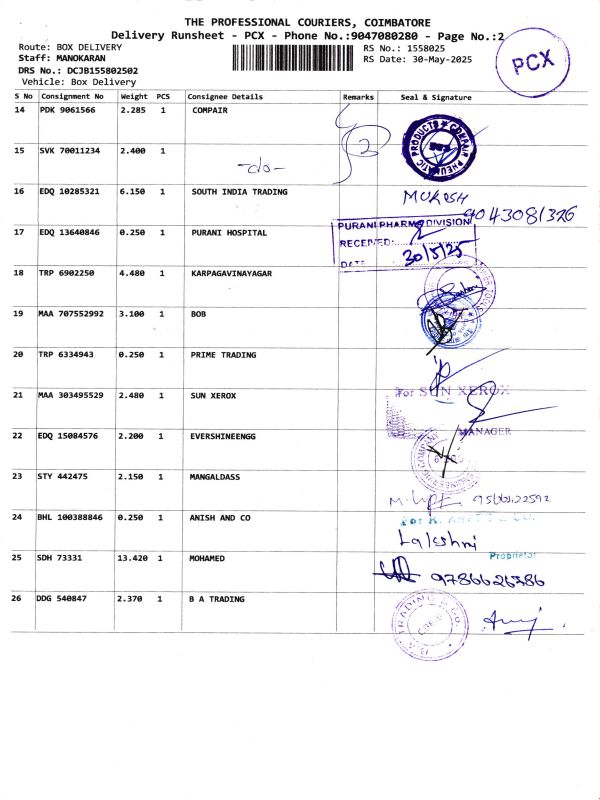 THE PROFESSIONAL COURIERS, COIMBATORE
Delivery Runsheet - PCX - Phone No.:9047080280 - Page No.:2
Route: BOX DELIVERY RS No.: 1558025
Staff: MANOKARAN RS Date: 30-May-2025
DRS No.: DCJB155802502
Vehicle: Box Delivery
PCX
S No Consignment No Weight PCS Consignee Details Remarks Seal & Signature
14 PDK 9061566 2.285 1 COMPAIR
PRODUCTS ★ COMPAIR PNEUMATIC
2
15 SVK 70011234 2.400 1
-do-
16 EDQ 10285321 6.150 1 SOUTH INDIA TRADING MUKESH
9043081326
17 EDQ 13640846 0.250 1 PURANI HOSPITAL
PURANI PHARMA DIVISION
RECEIVED:
DATE 30/5/25
18 TRP 6902250 4.480 1 KARPAGAVINAYAGAR
19 MAA 707552992 3.100 1 BOB
20 TRP 6334943 0.250 1 PRIME TRADING
21 MAA 303495529 2.480 1 SUN XEROX
For SUN XEROX
MANAGER
22 EDQ 15084576 2.200 1 EVERSHINEENGG
23 STY 442475 2.150 1 MANGALDASS
24 BHL 100388846 0.250 1 ANISH AND CO
Lakshmi
Proprietor
25 SDH 73331 13.420 1 MOHAMED
9786626386
26 DDG 540847 2.370 1 B A TRADING
B.A TRADING & CO.